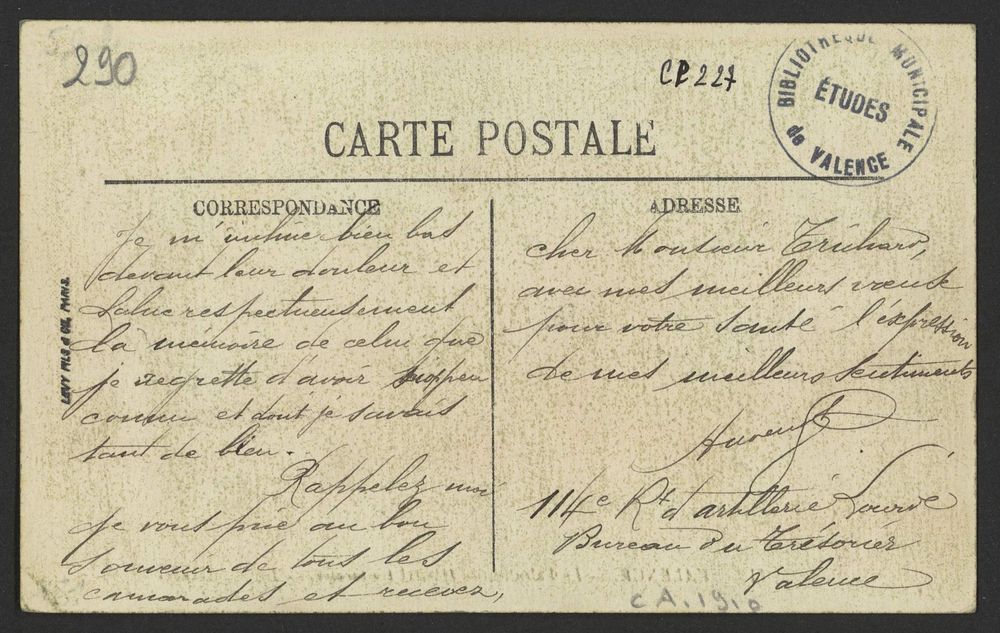 290
CP 227
BIBLIOTHEQUE MUNICIPALE
ÉTUDES
de VALENCE
CARTE POSTALE
CORRESPONDANCE
Je m'incline bien bas
devant leur douleur et
salue respectueusement
la mémoire de celui que
je regrette d'avoir si peu
connu et dont je savais
tant de bien.
Rappelez moi
je vous prie au bon
souvenir de tous les
camarades et recevez,
LEVY FILS & CIE, PARIS.
ADRESSE
cher Monsieur Truchard,
avec mes meilleurs vœux
pour votre santé l'expression
de mes meilleurs sentiments
114e Rt d'artillerie Lourde
Bureau du Trésorier
Valence
CA.1910